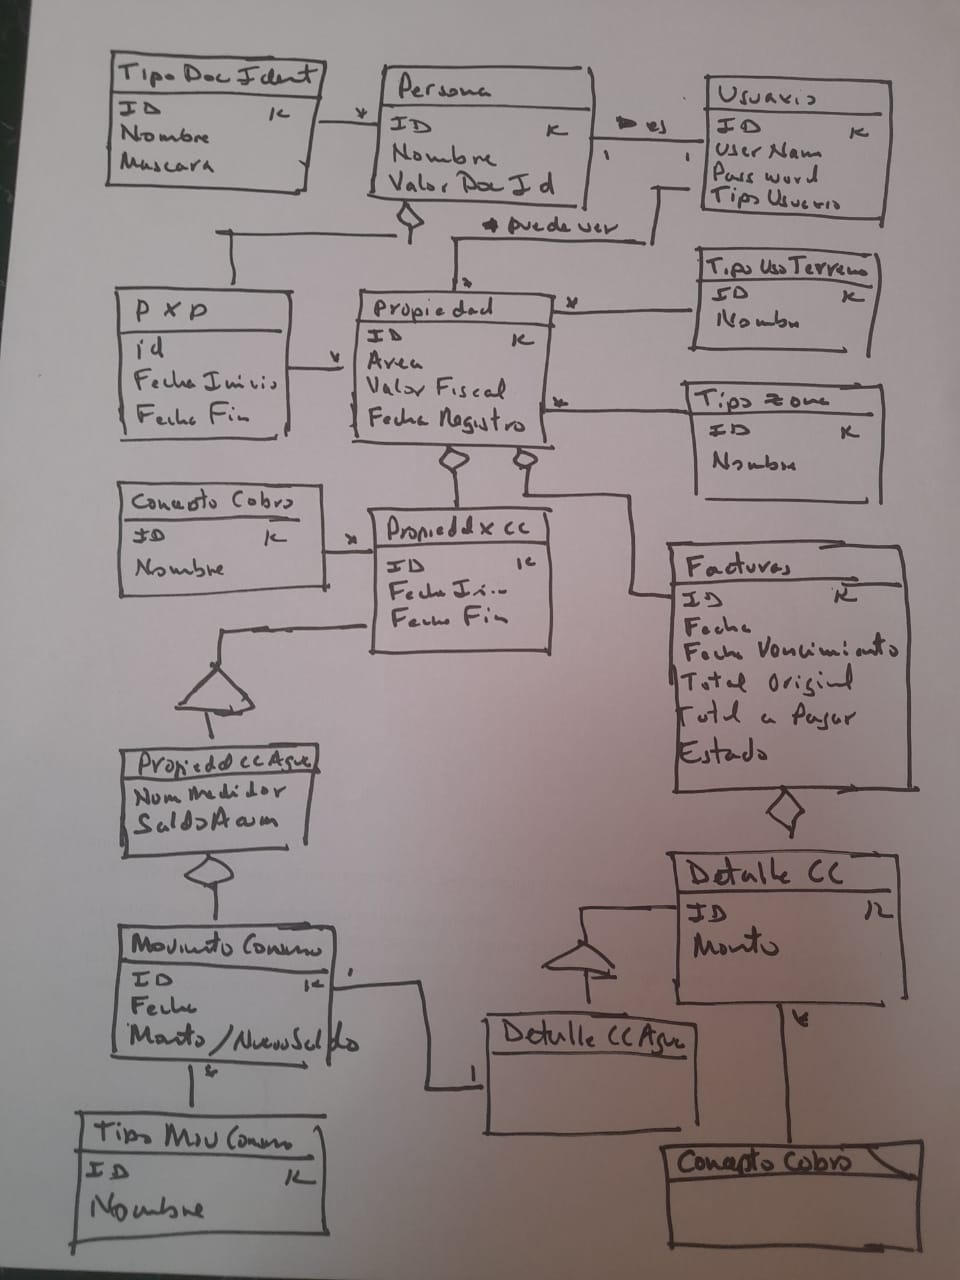 Tipo Doc Ident
ID K
Nombre
Mascara
*
Persona
ID K
Nombre
Valor Doc Id
es
1
1
Usuario
ID K
User Nam
Password
Tipo Usuario
puede ver
*
P X P
id
Fecha Inicio
Fecha Fin
*
Propiedad
ID K
Area
Valor Fiscal
Fecha Registro
*
Tipo Uso Terreno
ID K
Nombre
*
Tipo Zona
ID K
Nombre
Concepto Cobro
ID K
Nombre
*
Propiedd X CC
ID K
Fecha Ini..
Fecha Fin
Facturas
ID K
Fecha
Fecha Vencimiento
Total Original
Total a Pagar
Estado
Propiedd CC Agua
Num Medidor
Saldo Acum
Detalle CC
ID K
Monto
Movimto Consumo
ID K
Fecha
Monto / Nuevo Saldo
1
1
*
Detalle CC Agua
*
Tipo Mov Consumo
ID K
Nombre
Concepto Cobro